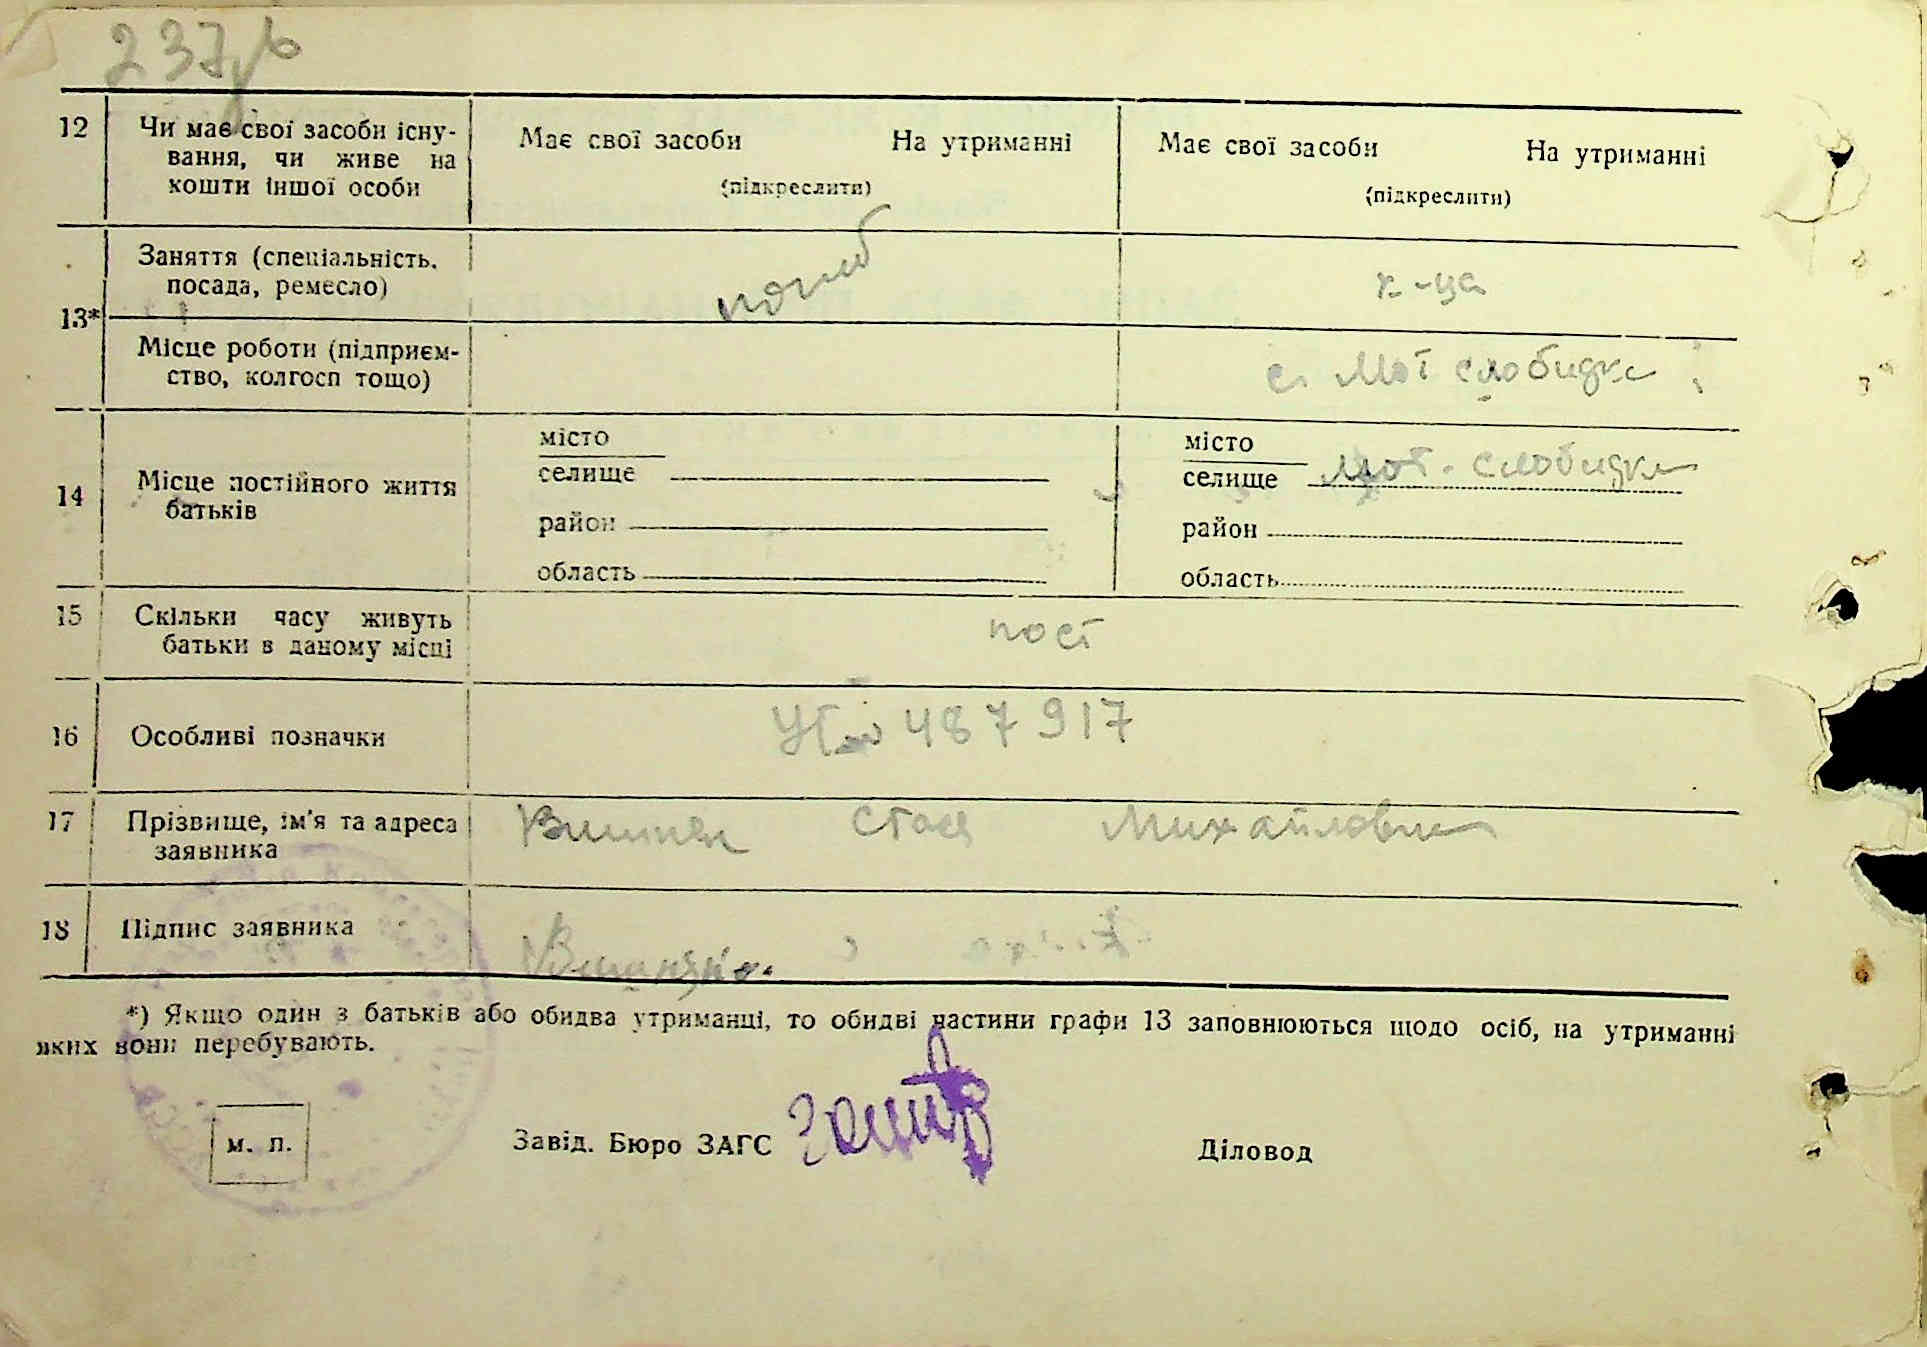 237
12 Чи має свої засоби існу-
вання, чи живе на
кошти іншої особи
Має свої засоби На утриманні
(підкреслити)
Має свої засоби На утриманні
(підкреслити)
13* Заняття (спеціальність,
посада, ремесло)
к-ця
Місце роботи (підприєм-
ство, колгосп тощо)
с. Мот слобидка
14 Місце постійного життя
батьків
місто
селище
район
область
місто
селище Мот. слобидка
район
область
15 Скільки часу живуть
батьки в даному місці
пост
16 Особливі позначки
487917
17 Прізвище, ім'я та адреса
заявника
Стася Михайловна
18 Підпис заявника
*) Якщо один з батьків або обидва утриманці, то обидві частини графи 13 заповнюються щодо осіб, на утриманні
яких вони перебувають.
м. п.
Завід. Бюро ЗАГС
Діловод